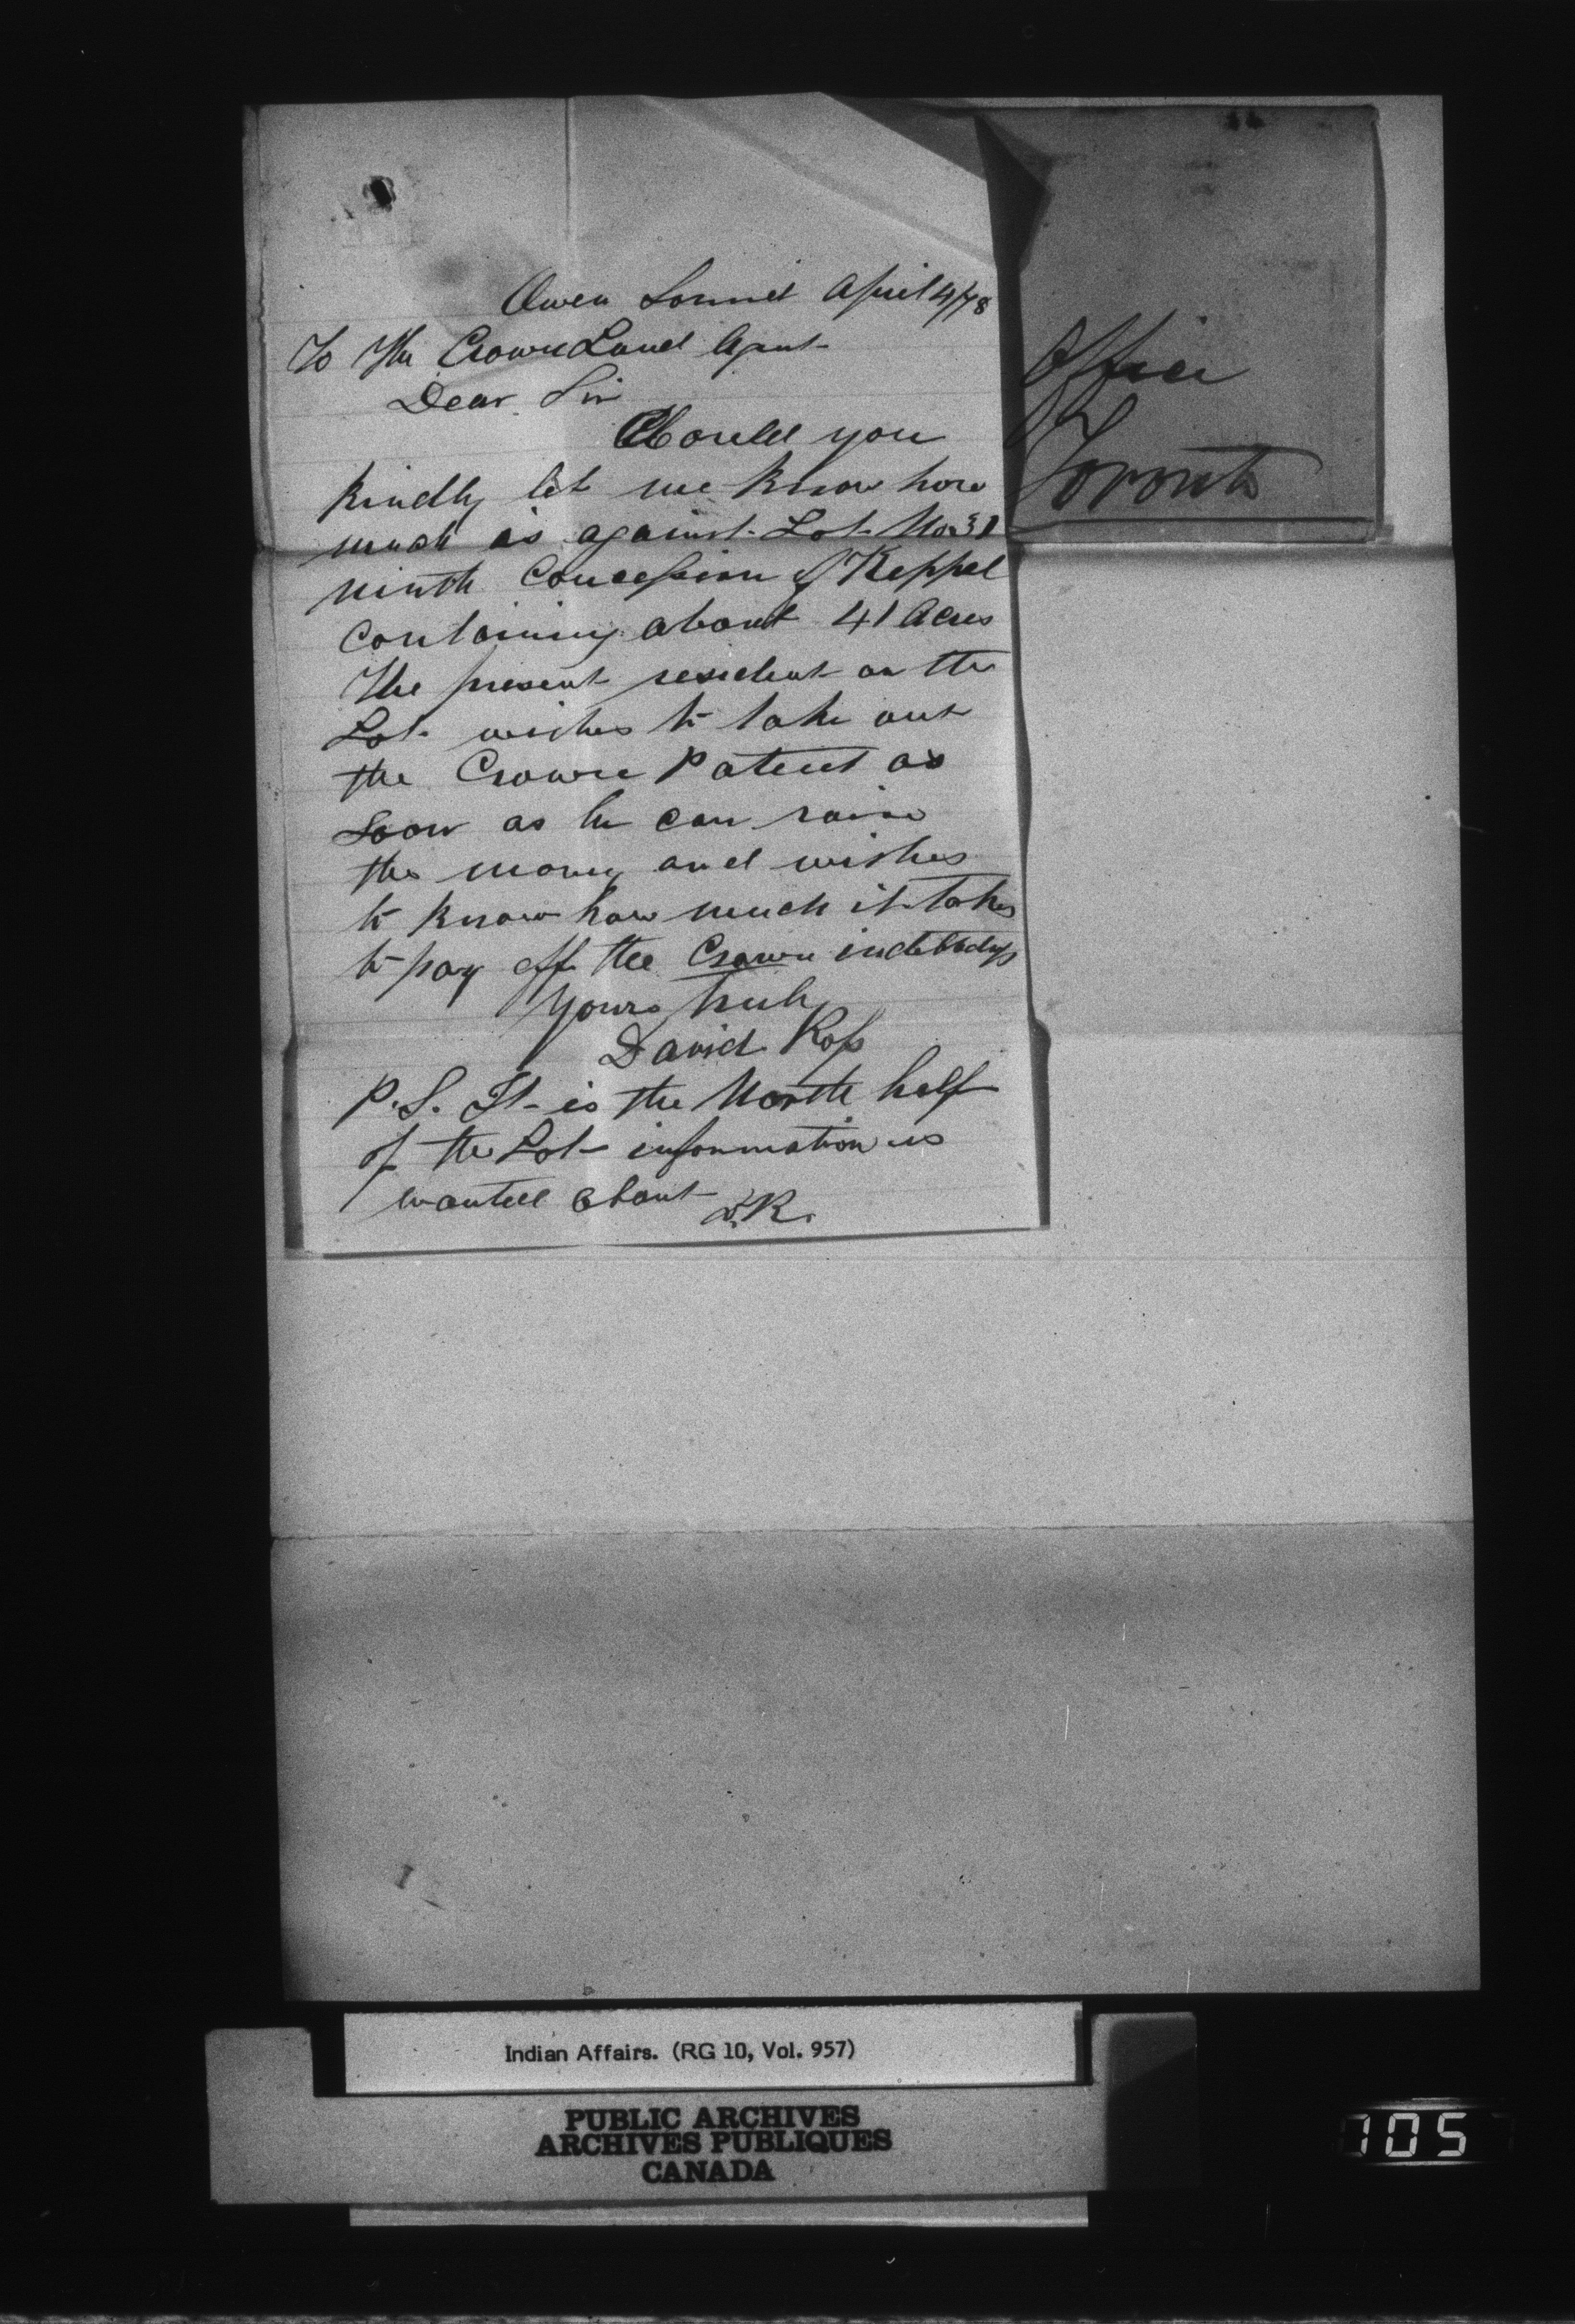 Owen Sound April 4/78
To The Crown Land Agent
Dear Sir
Would you
kindly let me know how
much is against Lot No 31
ninth Concession of Keppel
containing about 41 Acres
The present resident on the
Lot wishes to take out
the Crown Patent as
soon as he can raise
the money and wishes
to know how much it takes
to pay off the Crown indebtedness
Yours truly
David Ross
P.S. It is the North half
of the Lot information is
wanted about D.R.
Office
Toronto
Indian Affairs. (RG 10, Vol. 957)
PUBLIC ARCHIVES
ARCHIVES PUBLIQUES
CANADA
105